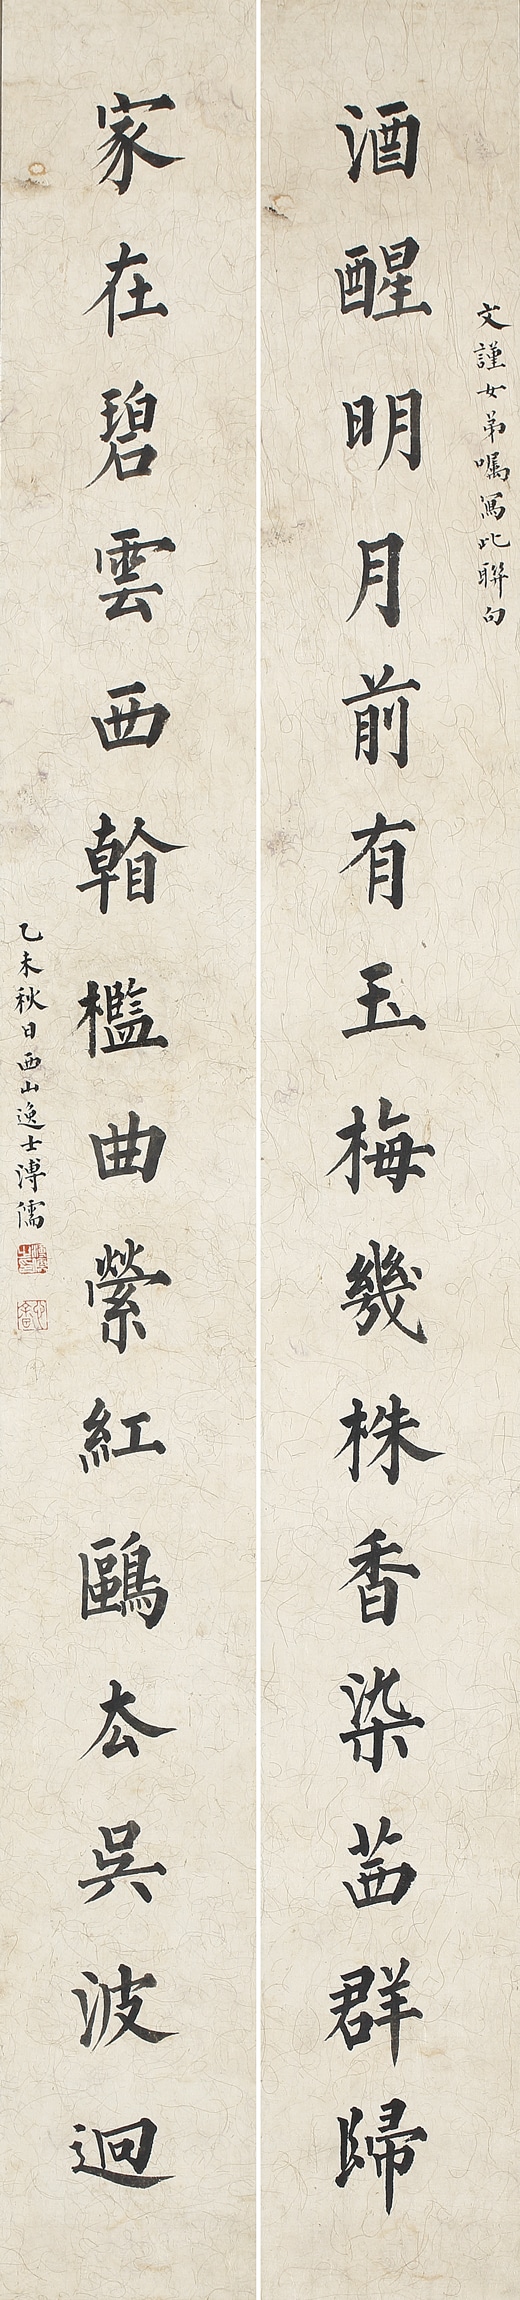 文謹女弟囑寫此聯句
酒醒明月前有玉梅幾株香染茜群歸
家在碧雲西斡檻曲縈紅鷗去吳波迥
乙未秋日西山逸士溥儒